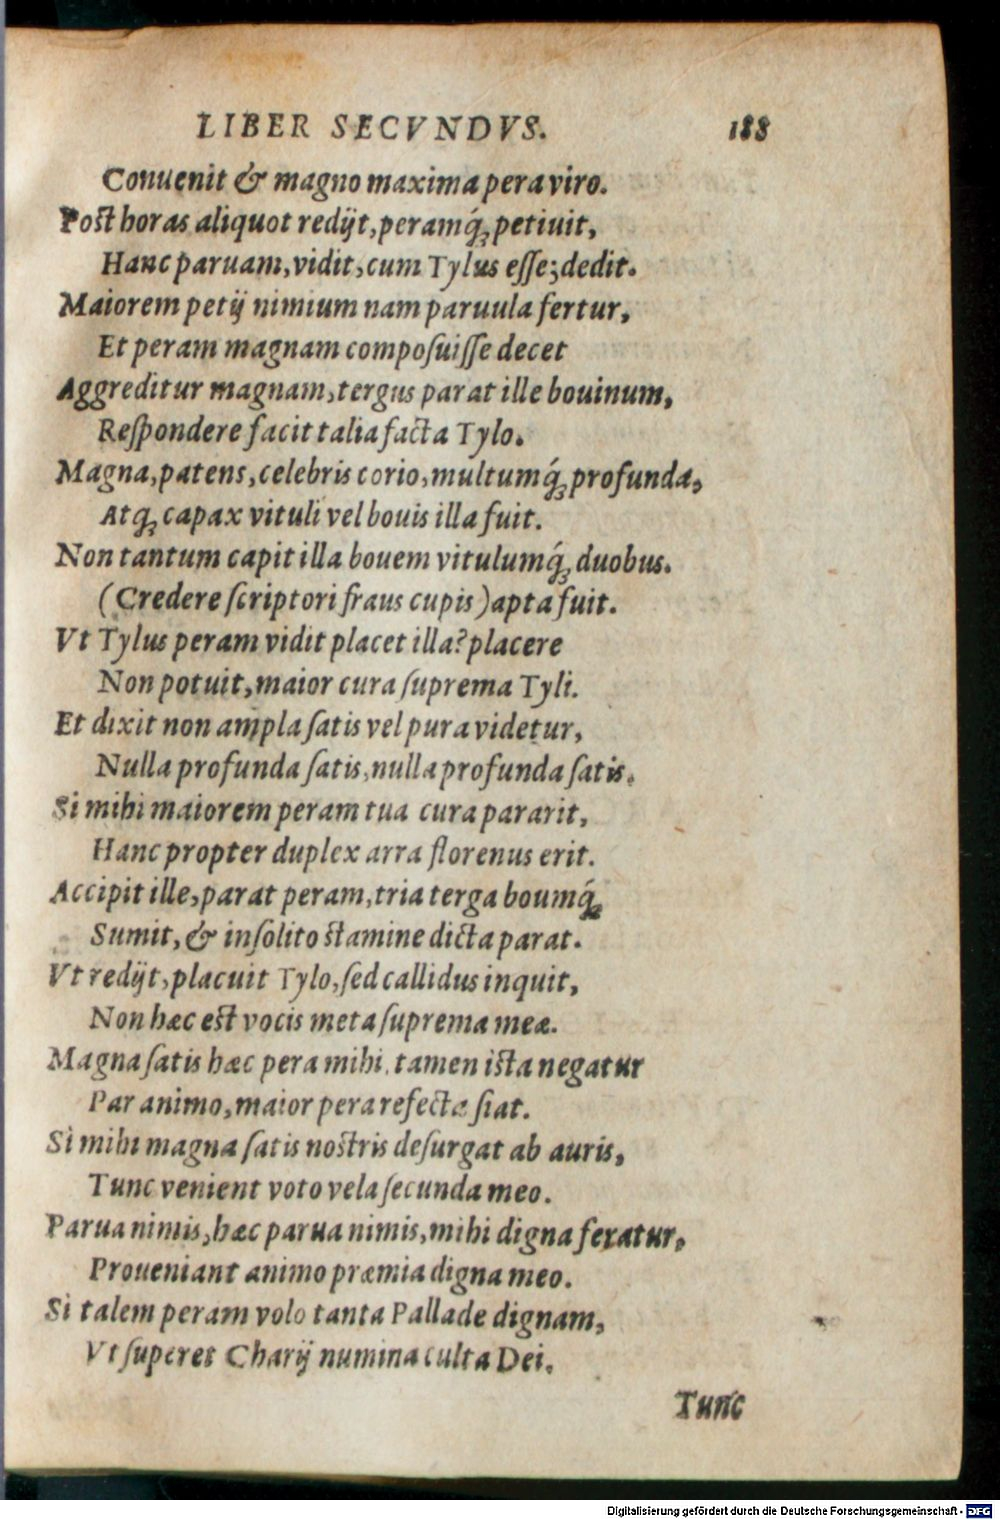 LIBER SECVNDVS. 188
Conuenit & magno maxima pera viro.
Post horas aliquot redijt, peramq́; petiuit,
Hanc paruam, vidit, cum Tylus esse; dedit.
Maiorem petij nimium nam paruula fertur,
Et peram magnam composuisse decet
Aggreditur magnam, tergus parat ille bouinum,
Respondere facit talia facta Tylo.
Magna, patens, celebris corio, multumq́; profunda,
Atq; capax vituli vel bouis illa fuit.
Non tantum capit illa bouem vitulumq́; duobus.
(Credere scriptori fraus cupis) apta fuit.
Vt Tylus peram vidit placet illa? placere
Non potuit, maior cura suprema Tyli.
Et dixit non ampla satis vel pura videtur,
Nulla profunda satis, nulla profunda satis.
Si mihi maiorem peram tua cura pararit,
Hanc propter duplex arra florenus erit.
Accipit ille, parat peram, tria terga boumq́;
Sumit, & insolito stamine dicta parat.
Vt redijt, placuit Tylo, sed callidus inquit,
Non hæc est vocis meta suprema meæ.
Magna satis hæc pera mihi, tamen ista negatur
Par animo, maior pera refecta fiat.
Si mihi magna satis nostris desurgat ab auris,
Tunc venient voto vela secunda meo.
Parua nimis, hæc parua nimis, mihi digna feratur,
Proueniant animo præmia digna meo.
Si talem peram volo tanta Pallade dignam,
Vt superet Charij numina culta Dei.
Tunc
Digitalisierung gefördert durch die Deutsche Forschungsgemeinschaft - DFG